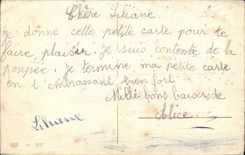 Chère Liliane
je donne cette petite carte pour te
faire plaisir. Je suis contente de la
poupée. Je termine ma petite carte
en t'embrassant bien fort.
Mille bons baisers de
Alice
Liliane